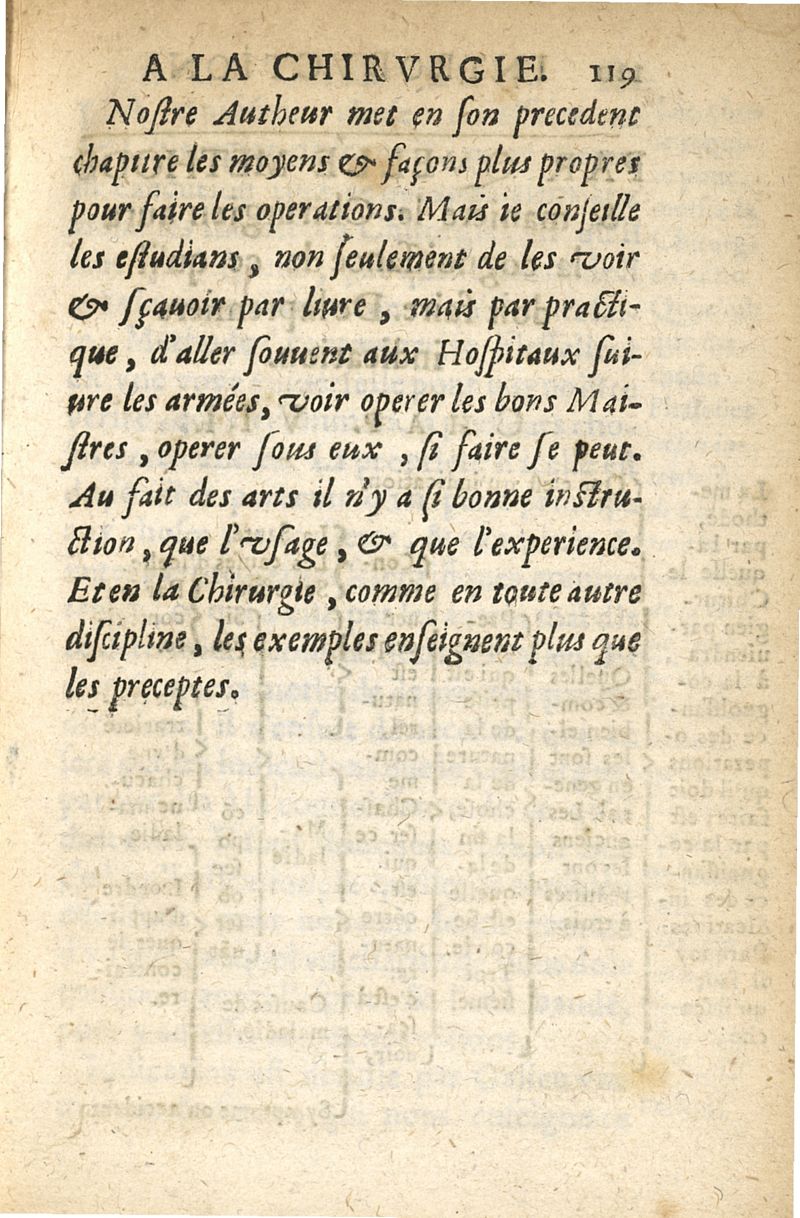 A LA CHIRVRGIE. 119
Noſtre Autheur met en ſon precedent
chapitre les moyens & façons plus propres
pour faire les operations. Mais ie conſeille
les eſtudians, non ſeulement de les voir
& ſçauoir par liure, mais par practi-
que, d'aller ſouuent aux Hoſpitaux ſui-
ure les armées, voir operer les bons Mai-
ſtres, operer ſous eux, ſi faire ſe peut.
Au fait des arts il n'y a ſi bonne inſtru-
ction, que l'vſage, & que l'experience.
Et en la Chirurgie, comme en toute autre
diſcipline, les exemples enſeignent plus que
les preceptes.